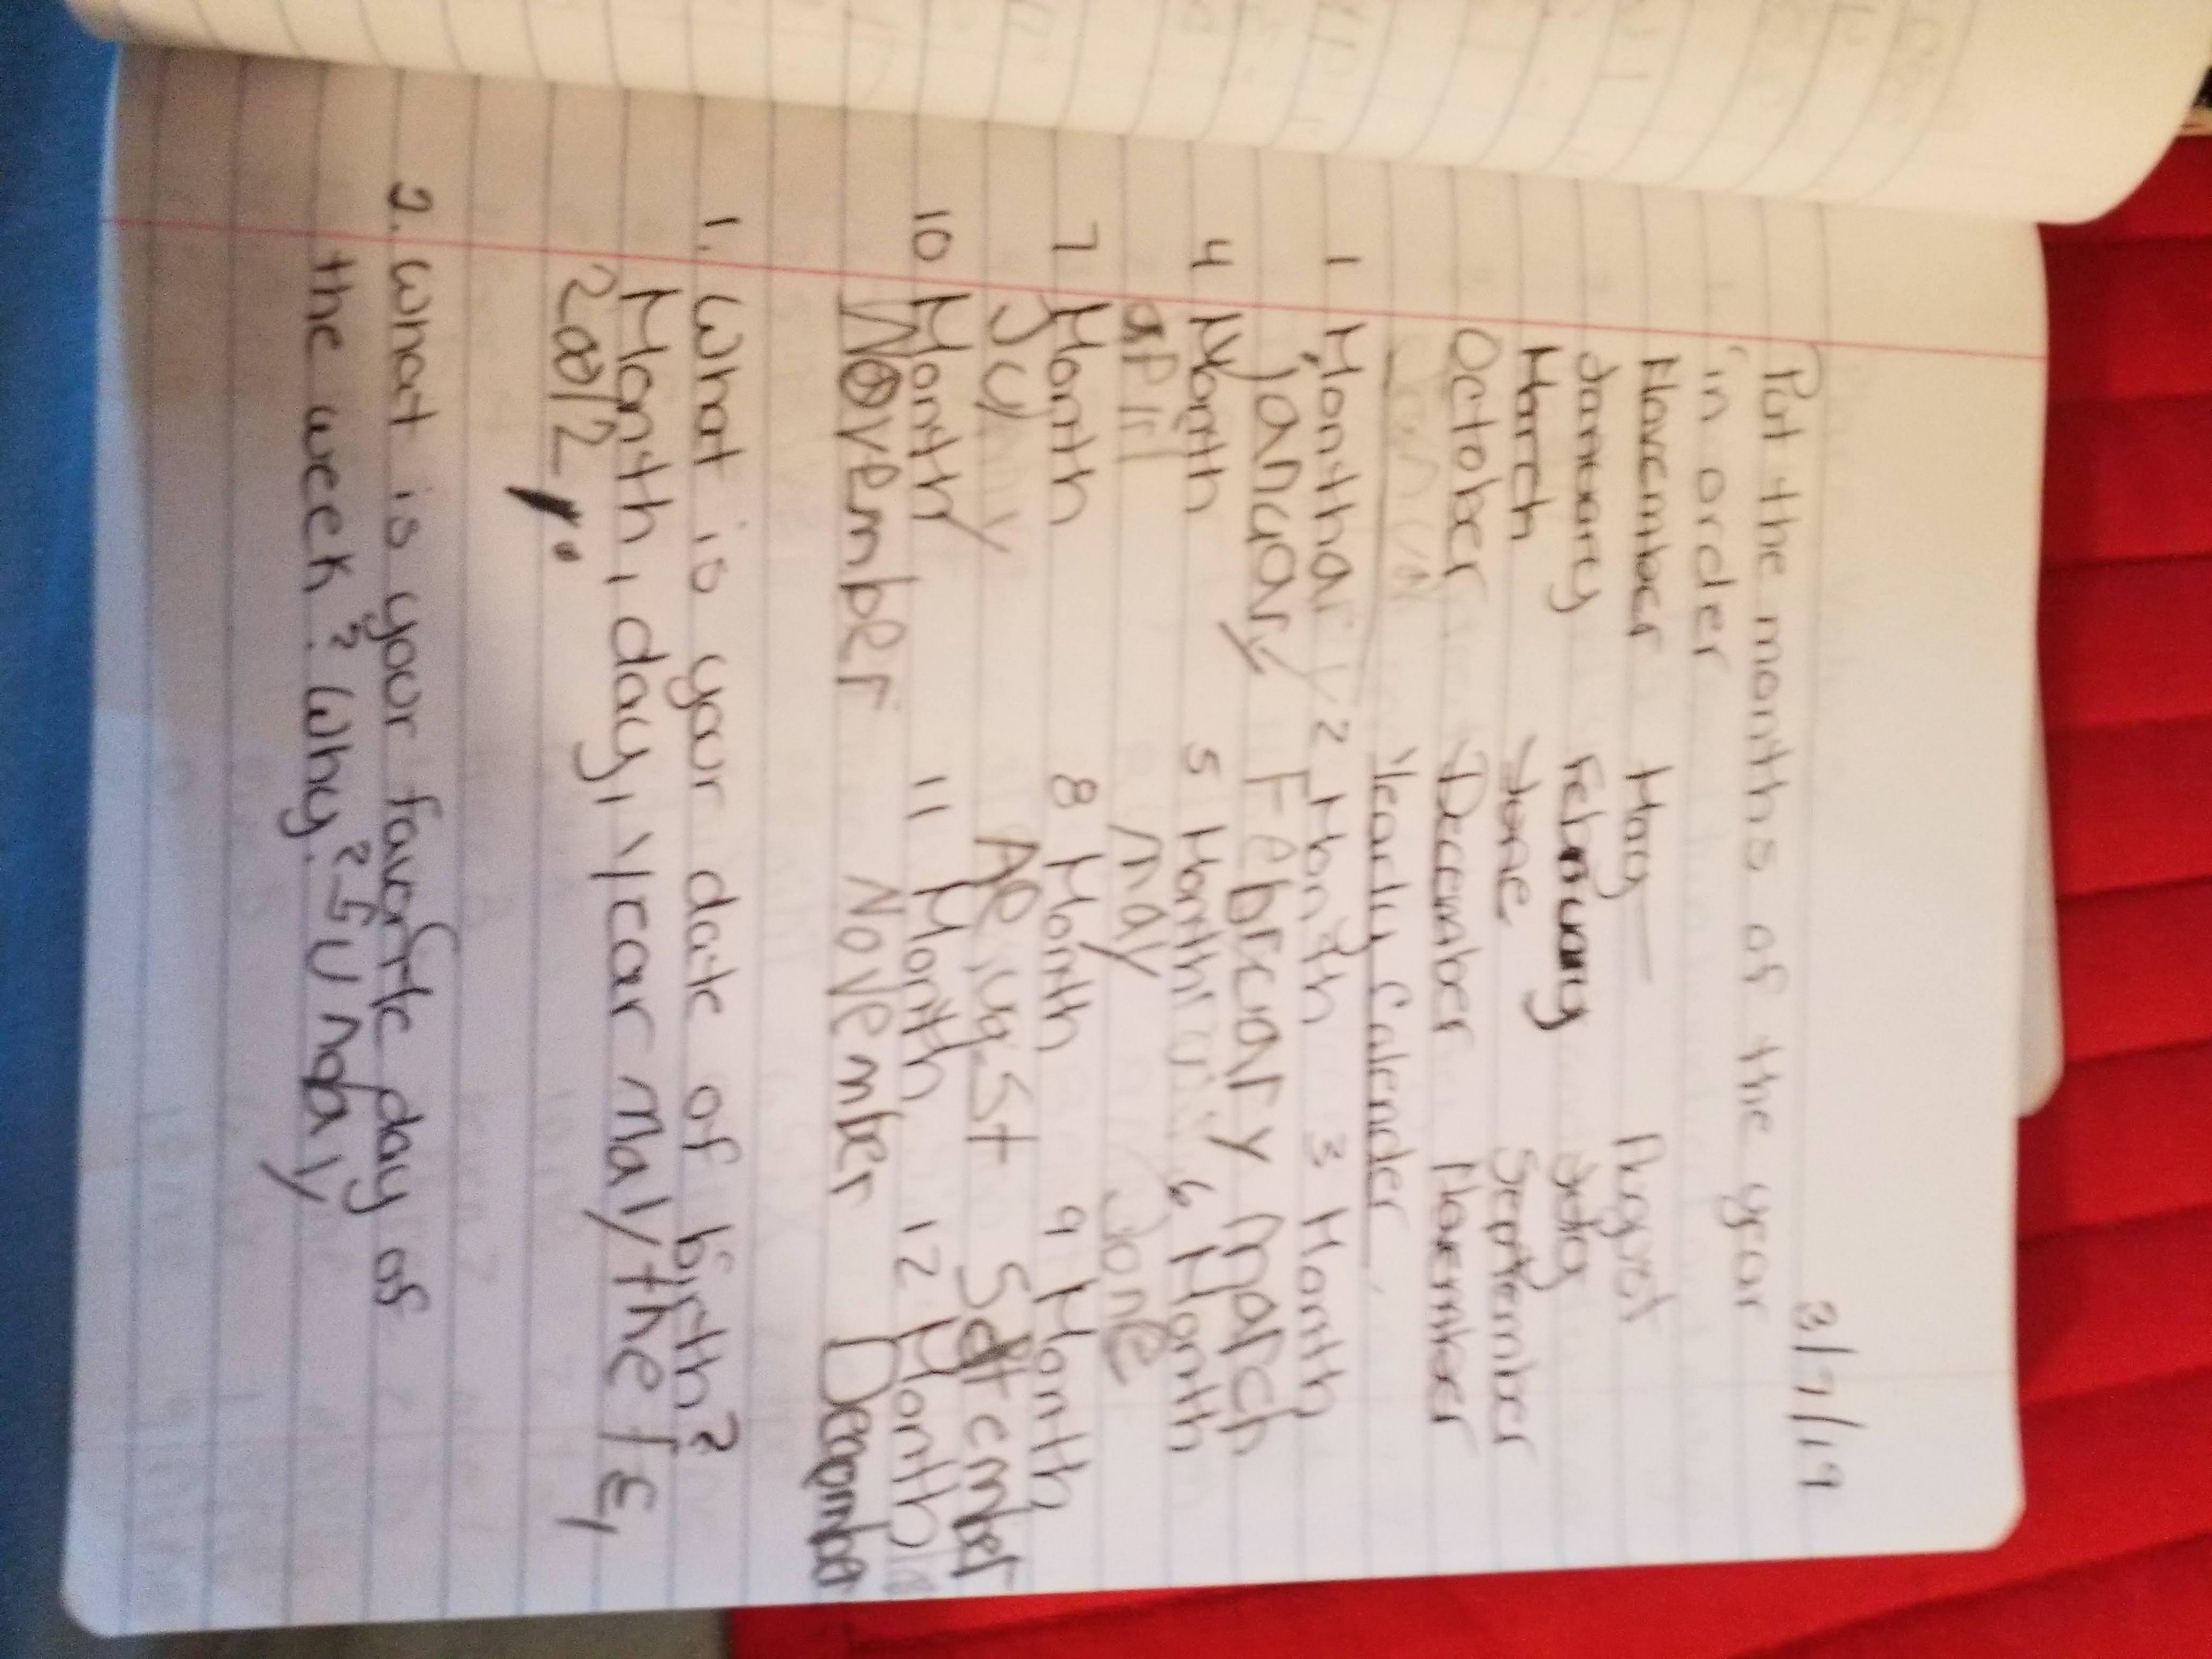 3/7/19
Put the months of the year
in order
November May August
January February July
March June September
October December November
Yearly Calender
1 Month 2 Month 3 Month
January February march
4 Month 5 Month 6 Month
april may June
7 Month 8 Month 9 Month
July
10 Month 11 Month 12 Month
November November
1. What is your date of birth?
Month, day, Year may/the
2. What is your favorite day of
the week? Why?